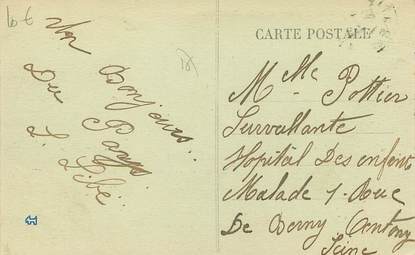 Un
Bonjours
Du Pays.
L.
CARTE POSTALE
Melle Pottier
Surveillante
Hopital Des enfants
Malade 1 Rue
De Berny Antony
Seine